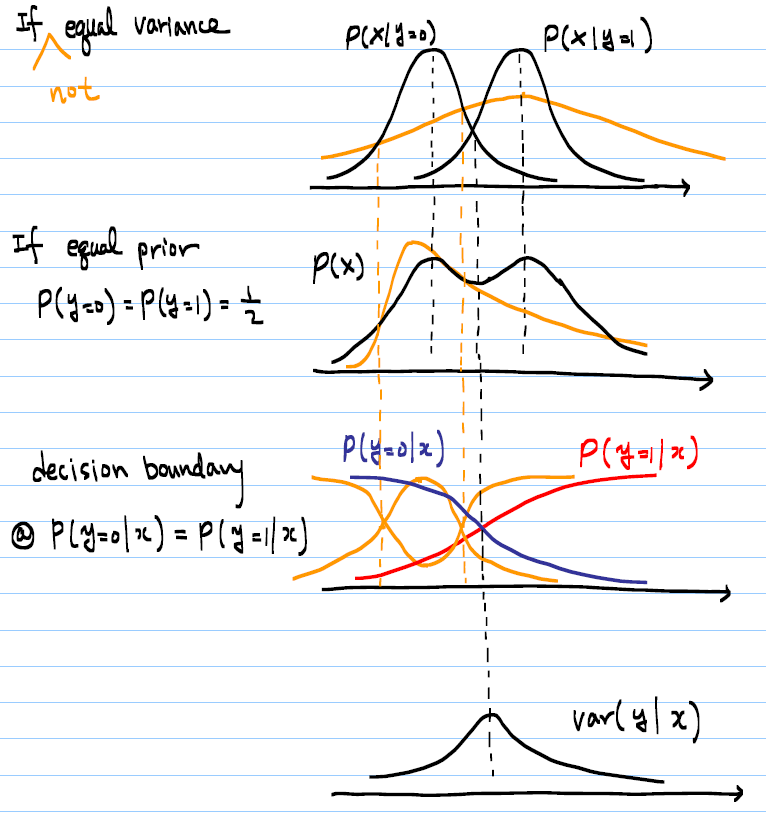 If equal variance
not
P(x|y=0)
P(x|y=1)
If equal prior
P(y=0) = P(y=1) = 1/2
P(x)
decision boundary
@ P(y=0|x) = P(y=1|x)
P(y=0|x)
P(y=1|x)
var(y|x)